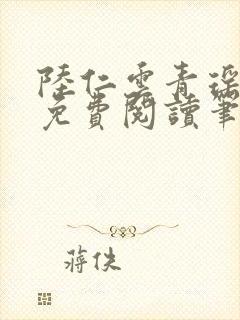 陸仁雲青瑤
免費閱讀筆
蔣佚